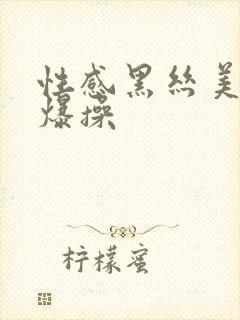 性感黑丝美
爆操
柠檬蜜